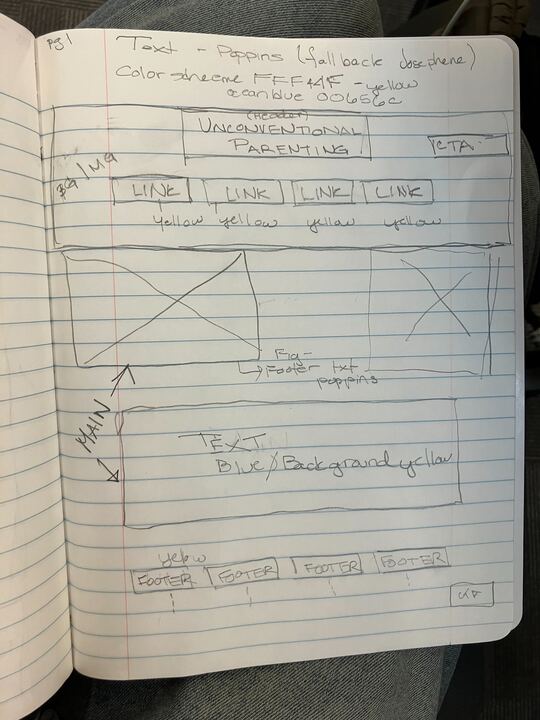 pg 1
Text - Poppins (fallback Josephene)
Color scheme FFF44F - yellow
ocean blue 00656c
(Header)
UNCONVENTIONAL
PARENTING
CTA
LINK LINK LINK LINK
yellow yellow yellow yellow
Fig-
Footer txt
poppins
MAIN
TEXT
Blue/Background yellow
yellow
FOOTER FOOTER FOOTER FOOTER